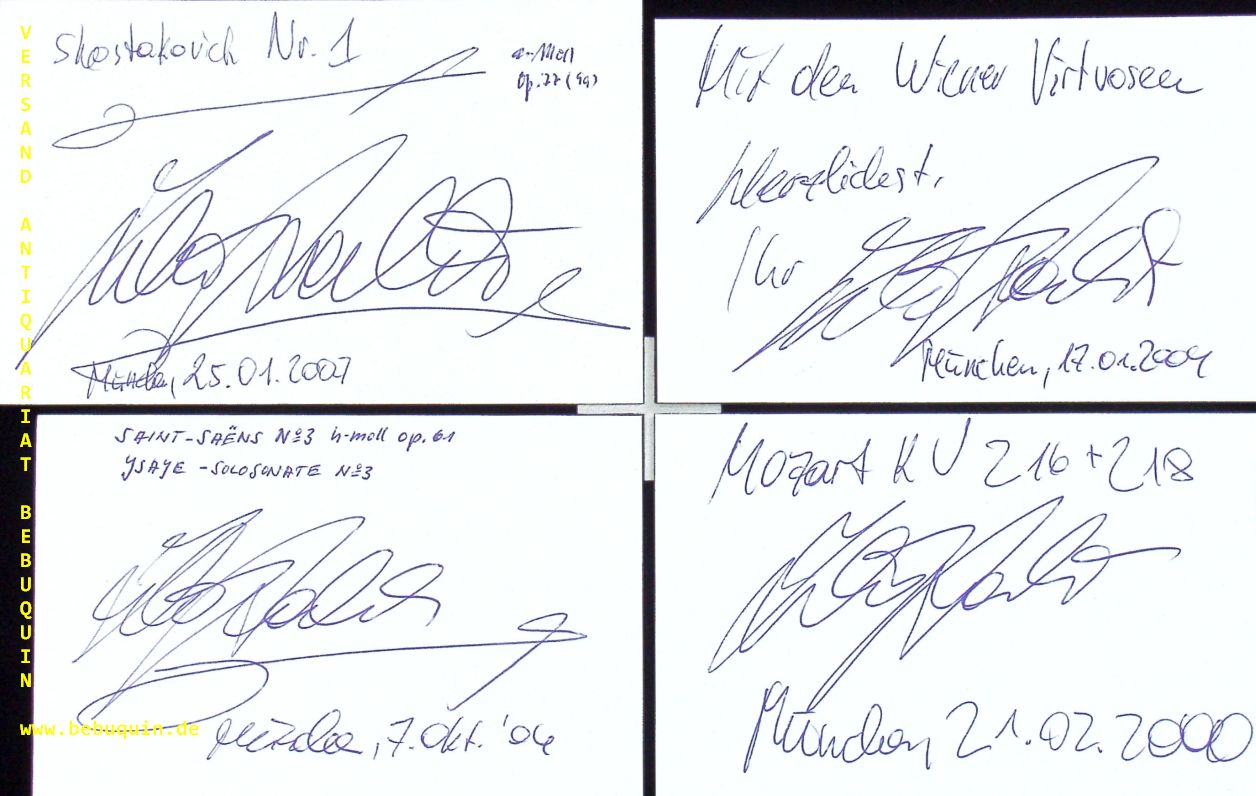 VERSAND ANTIQUARIAT BEBUQUIN
Shostakovich Nr. 1
a-moll
op. 77 (99)
München, 25.01.2007
Mit den Wiener Virtuosen
Herzlichst,
Ihr
München, 17.01.2004
SAINT-SAËNS Nº3 h-moll op. 61
YSAYE - SOLOSONATE Nº3
München, 7. Okt. '04
Mozart KV 216 + 218
München, 21.02.2000
www.bebuquin.de